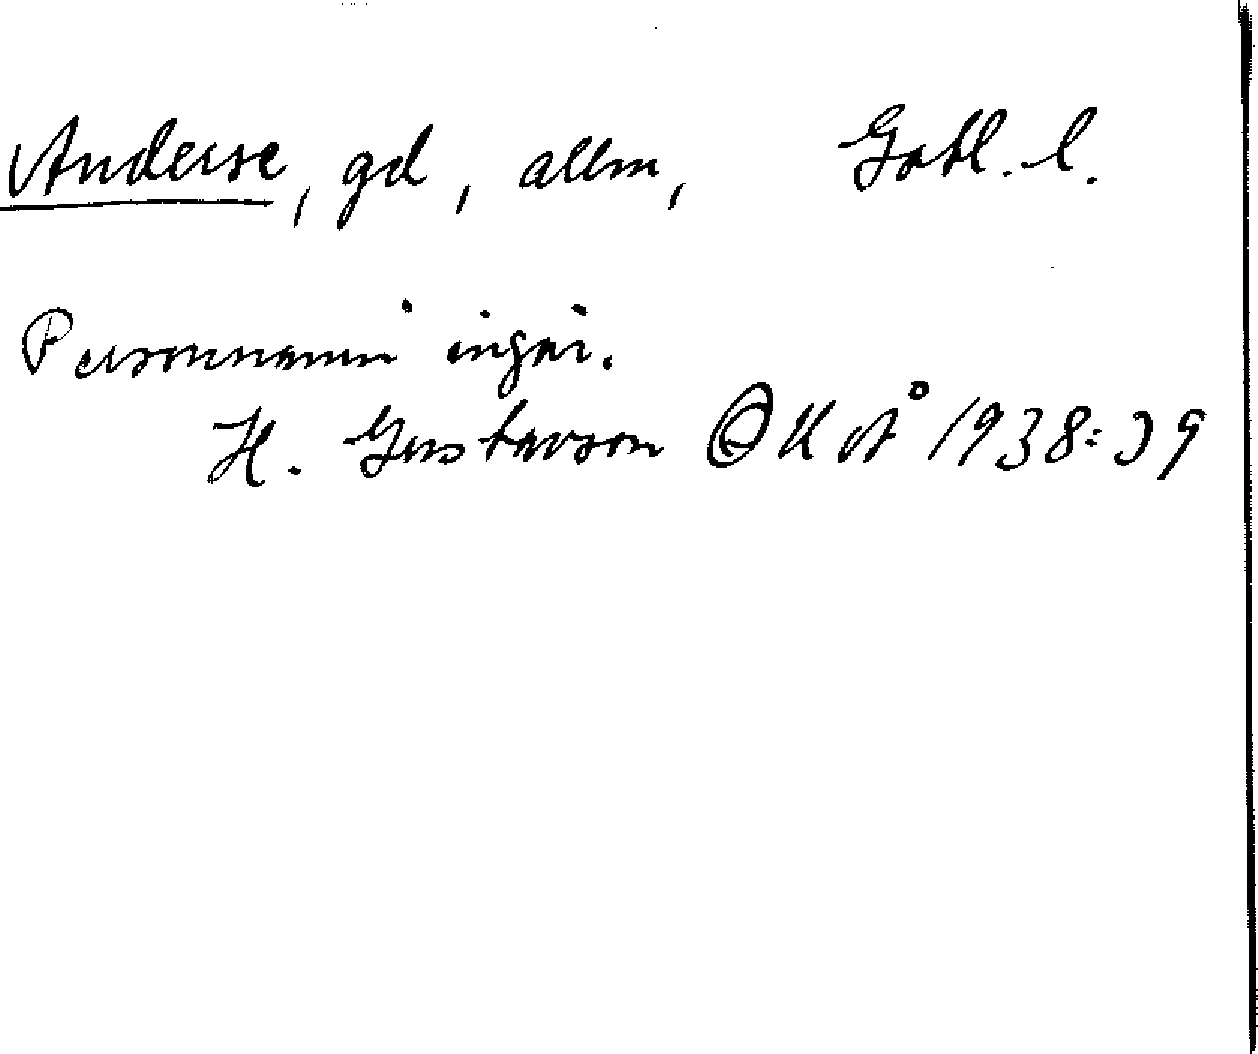 Anderse, gd, allm, Gotl. l.
Personnamn ingår.
H. Gustavson OUÅ 1938: 39